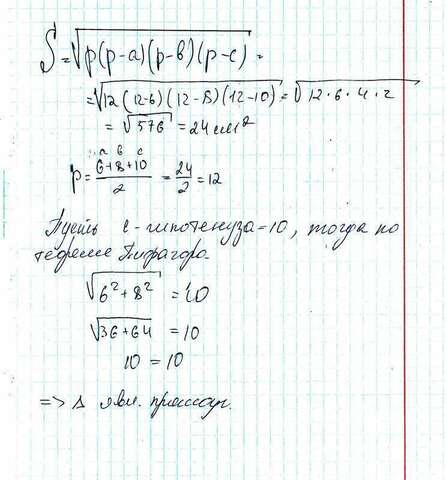 S = √p(p-a)(p-в)(p-c) =
= √12(12-6)(12-8)(12-10) = √12·6·4·2
= √576 = 24 см²
a в c
p = (6+8+10)/2 = 24/2 = 12
Пусть с - гипотенуза = 10, тогда по
теореме Пифагора.
√6²+8² = 10
√36+64 = 10
10 = 10
=> Δ явл. прямоуг.